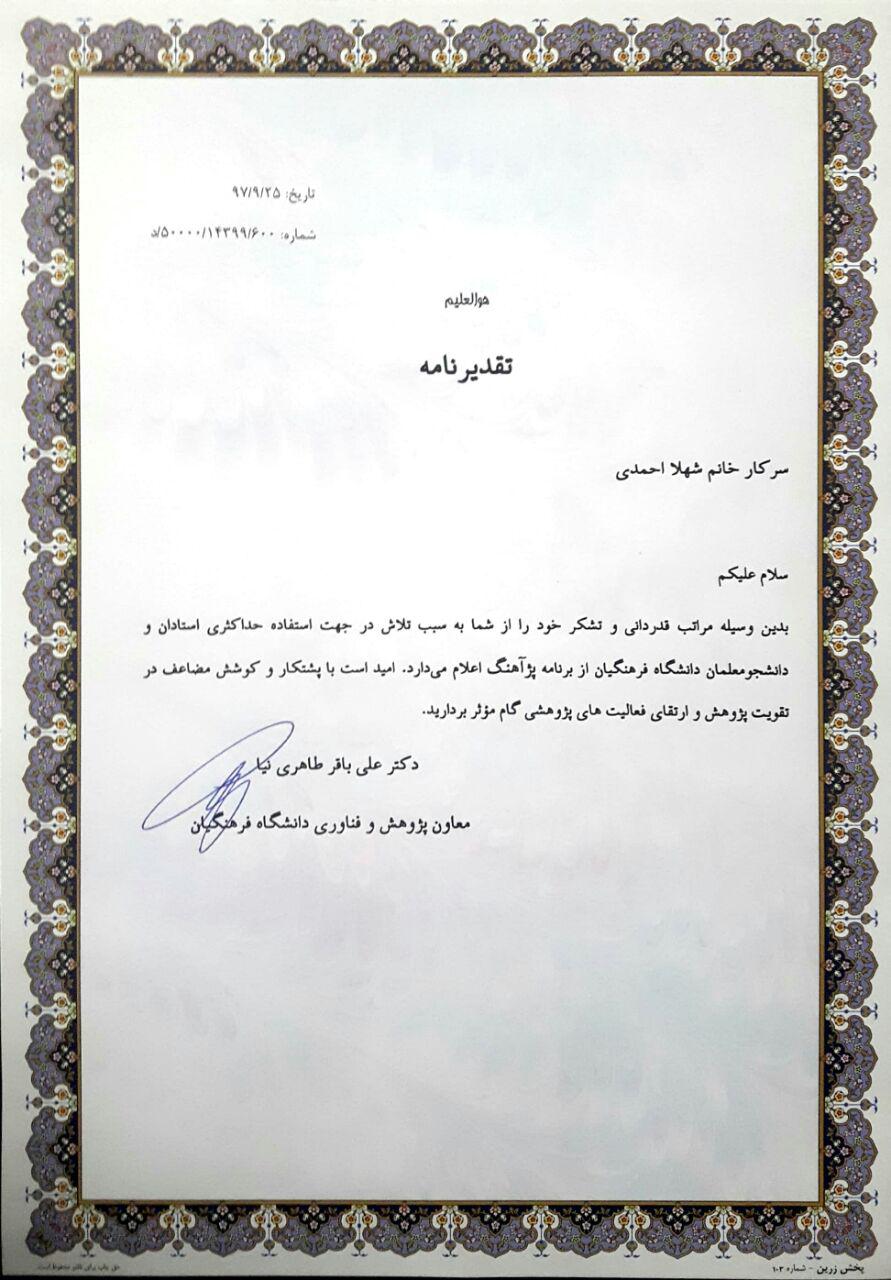 تاریخ: ۹۷/۹/۲۵
شماره: ۵۰۰۰۰/۱۴۳۹۹/۶۰۰/د
هوالعلیم
تقدیرنامه
سرکار خانم شهلا احمدی
سلام علیکم
بدین وسیله مراتب قدردانی و تشکر خود را از شما به سبب تلاش در جهت استفاده حداکثری استادان و
دانشجومعلمان دانشگاه فرهنگیان از برنامه پژآهنگ اعلام می‌دارد. امید است با پشتکار و کوشش مضاعف در
تقویت پژوهش و ارتقای فعالیت های پژوهشی گام مؤثر بردارید.
دکتر علی باقر طاهری نیا
معاون پژوهش و فناوری دانشگاه فرهنگیان
پخش زرین - شماره ۱۰۳
حق چاپ برای ناشر محفوظ است.